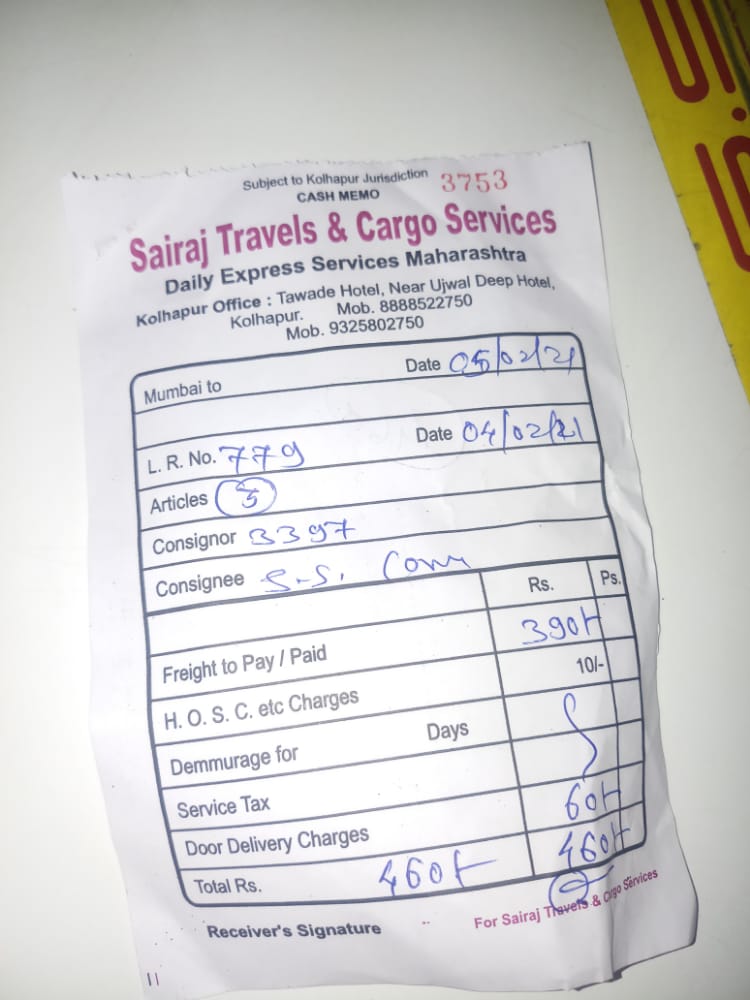 Subject to Kolhapur Jurisdiction 3753
CASH MEMO
Sairaj Travels & Cargo Services
Daily Express Services Maharashtra
Kolhapur Office : Tawade Hotel, Near Ujwal Deep Hotel,
Kolhapur. Mob. 8888522750
Mob. 9325802750
Mumbai to Date 05/02/21
L. R. No. 779 Date 04/02/21
Articles 5
Consignor 3397
Consignee S.S. Com
Rs. Ps.
Freight to Pay / Paid 390/-
H. O. S. C. etc Charges 10/-
Demmurage for Days
Service Tax
Door Delivery Charges 60/-
Total Rs. 460/- 460/-
Receiver's Signature For Sairaj Travels & Cargo Services